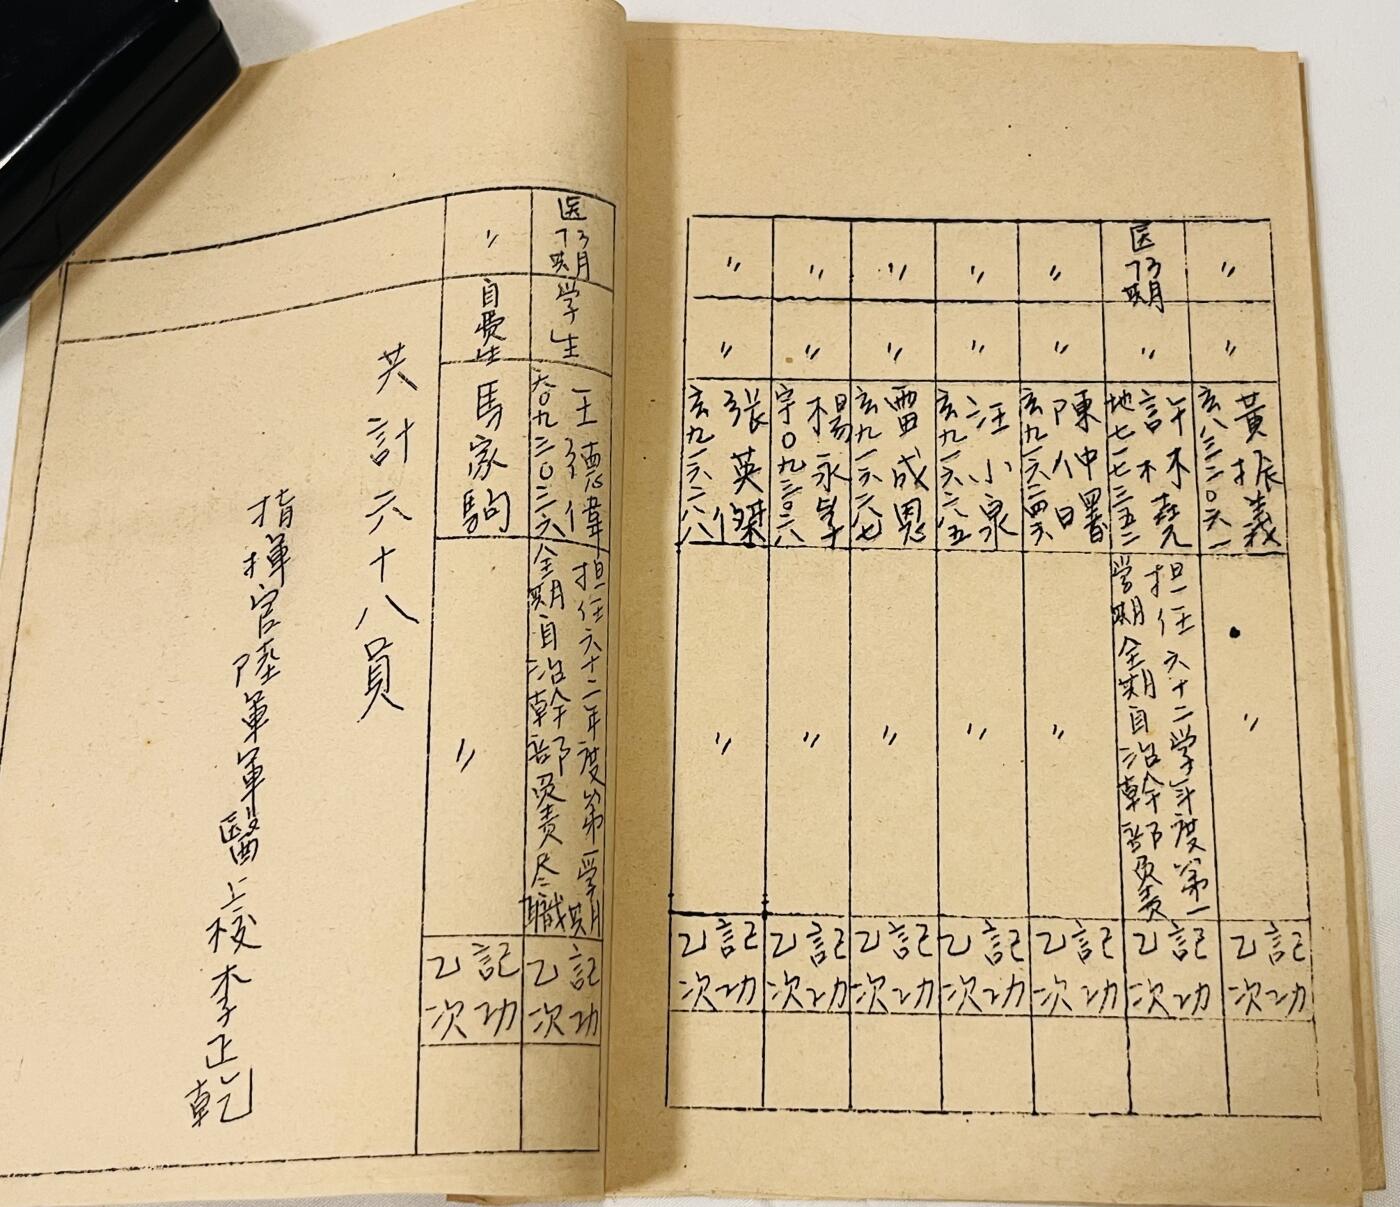 〃
〃
黃振義
玄八三二〇六一
〃
記功
乙次
医
73期
〃
許木堯
地七一七三五二
担任六十二学年度第一
学期全期自治幹部負責
記功
乙次
〃
〃
陳仲曙
玄九一六二四六
〃
記功
乙次
〃
〃
汪小泉
玄九一六六五
〃
記功
乙次
〃
〃
雷成恩
玄九一六六七
〃
記功
乙次
〃
〃
楊永學
宇〇九三〇六
〃
記功
乙次
〃
〃
張英傑
玄九一六二八
〃
記功
乙次
医
73期
学生
王德偉
六〇九三〇三六
担任六十二年度第一学期
全期自治幹部負責尽職
記功
乙次
〃
自費生
馬家駒
〃
記功
乙次
共計六十八員
指揮官陸軍軍醫上校李正乾